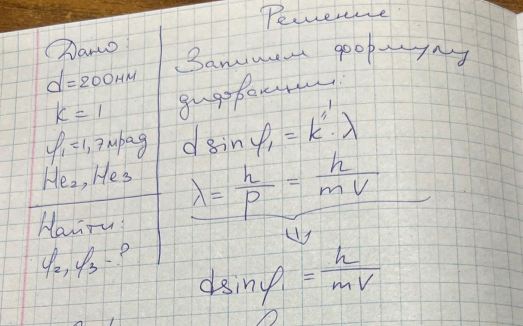 Решение
Дано:
d=200нм
k=1
φ₁=1,7мрад
He₂, He₃
Найти:
φ₂, φ₃-?
Запишем формулу
дифракции:
d sin φ₁ = k"¹ · λ
λ = h/p = h/mV
⇓
d sin φ₁ = h/mV